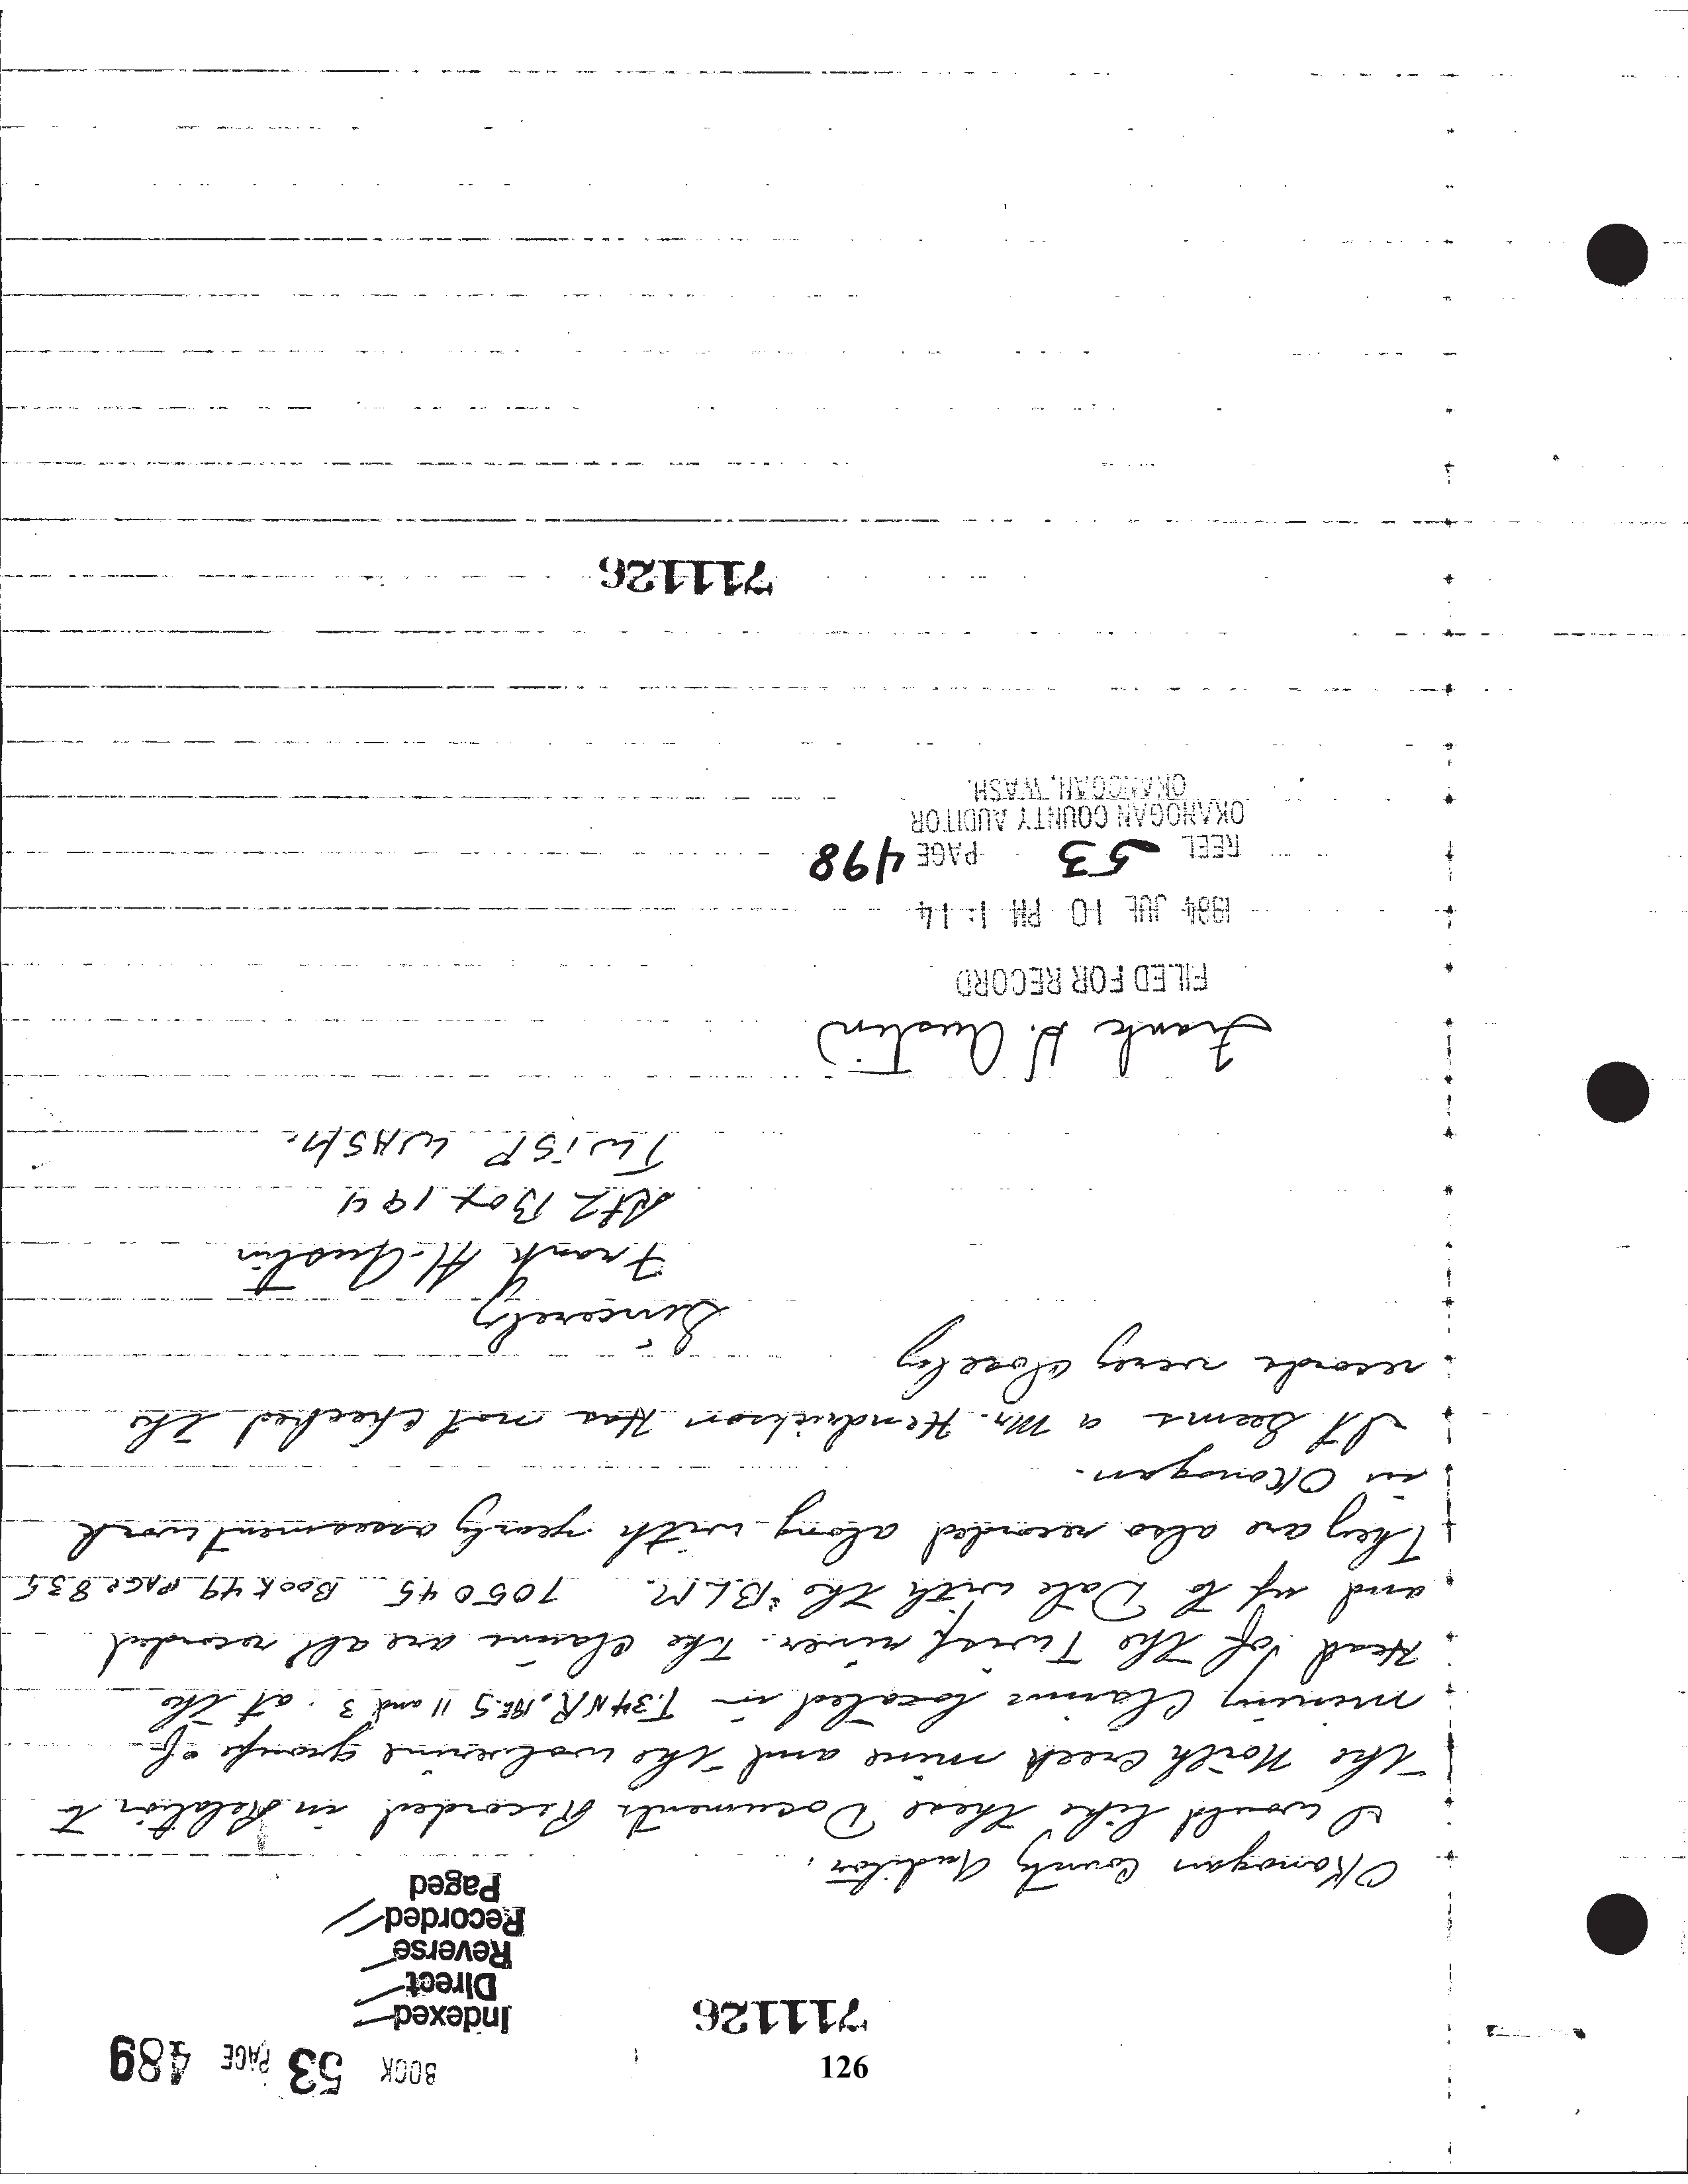 BOOK 53 PAGE 489
711126
Indexed
Direct
Reverse
Recorded
Paged
Okanogan County Auditor,
I would like these Documents Recorded in Relation to
the North Creek mine and the wolverine groups of
mining Claims located in T.34N R.18E S 11 and 3. at the
Head of the Twisp river. The Claims are all recorded
and up to Date with the B.L.M. 705045 BOOK 49 PAGE 835
They are also recorded along with yearly assesment work
in Okanogan.
It Seems a Mr. Hendrickson Has not checked the
records very closeley
Sincerely
Frank H. Austin
Rt 2 Box 194
TWISP WASH.
Frank H. Austin
FILED FOR RECORD
1984 JUL 10 PM 1:14
REEL 53 PAGE 498
OKANOGAN COUNTY AUDITOR
OKANOGAN, WASH.
711126
126